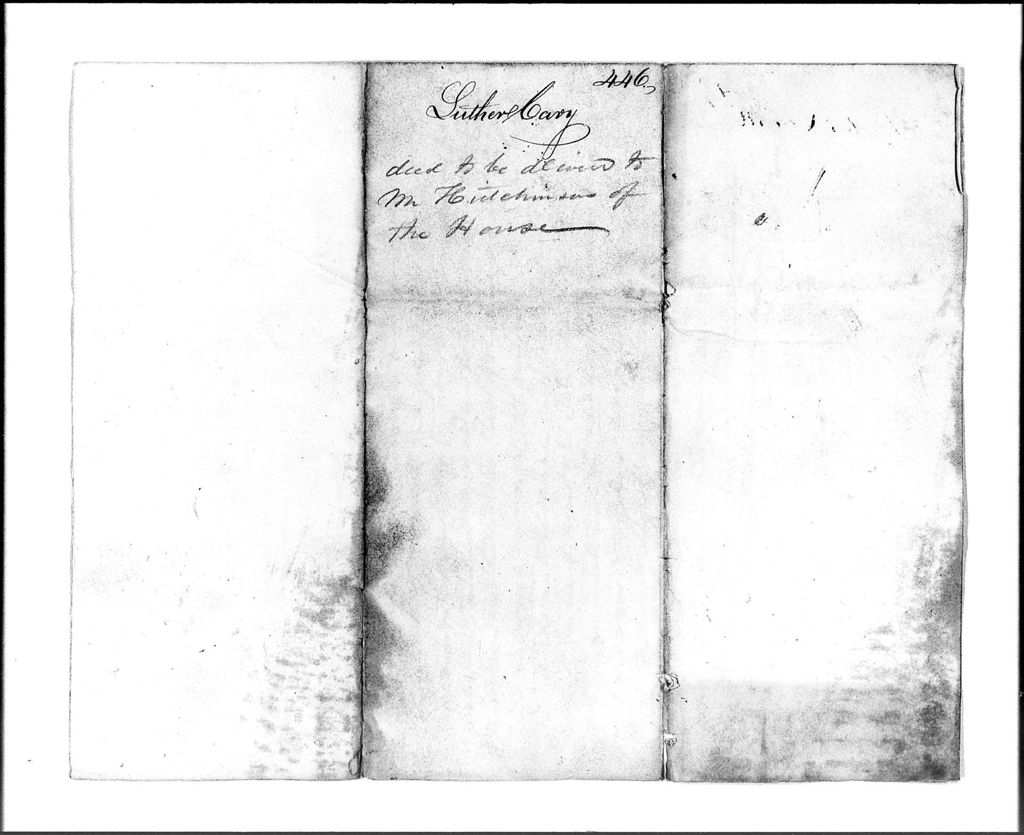 446
Luther Cary
deed to be deliverd to
Mr Hutchinson of
the House